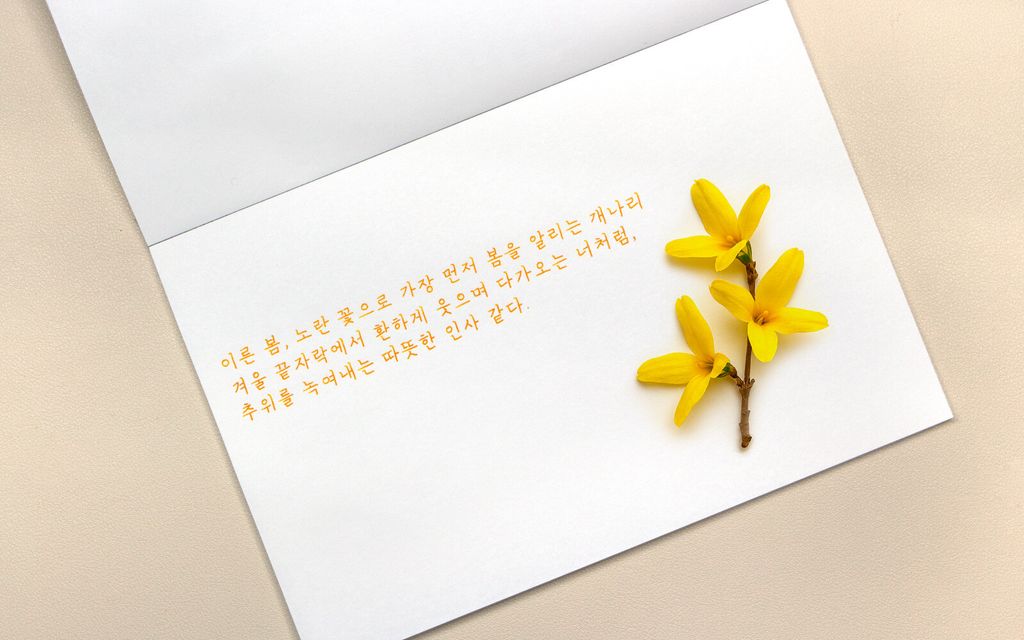 이른 봄, 노란 꽃으로 가장 먼저 봄을 알리는 개나리
겨울 끝자락에서 환하게 웃으며 다가오는 너처럼,
추위를 녹여내는 따뜻한 인사 같다.